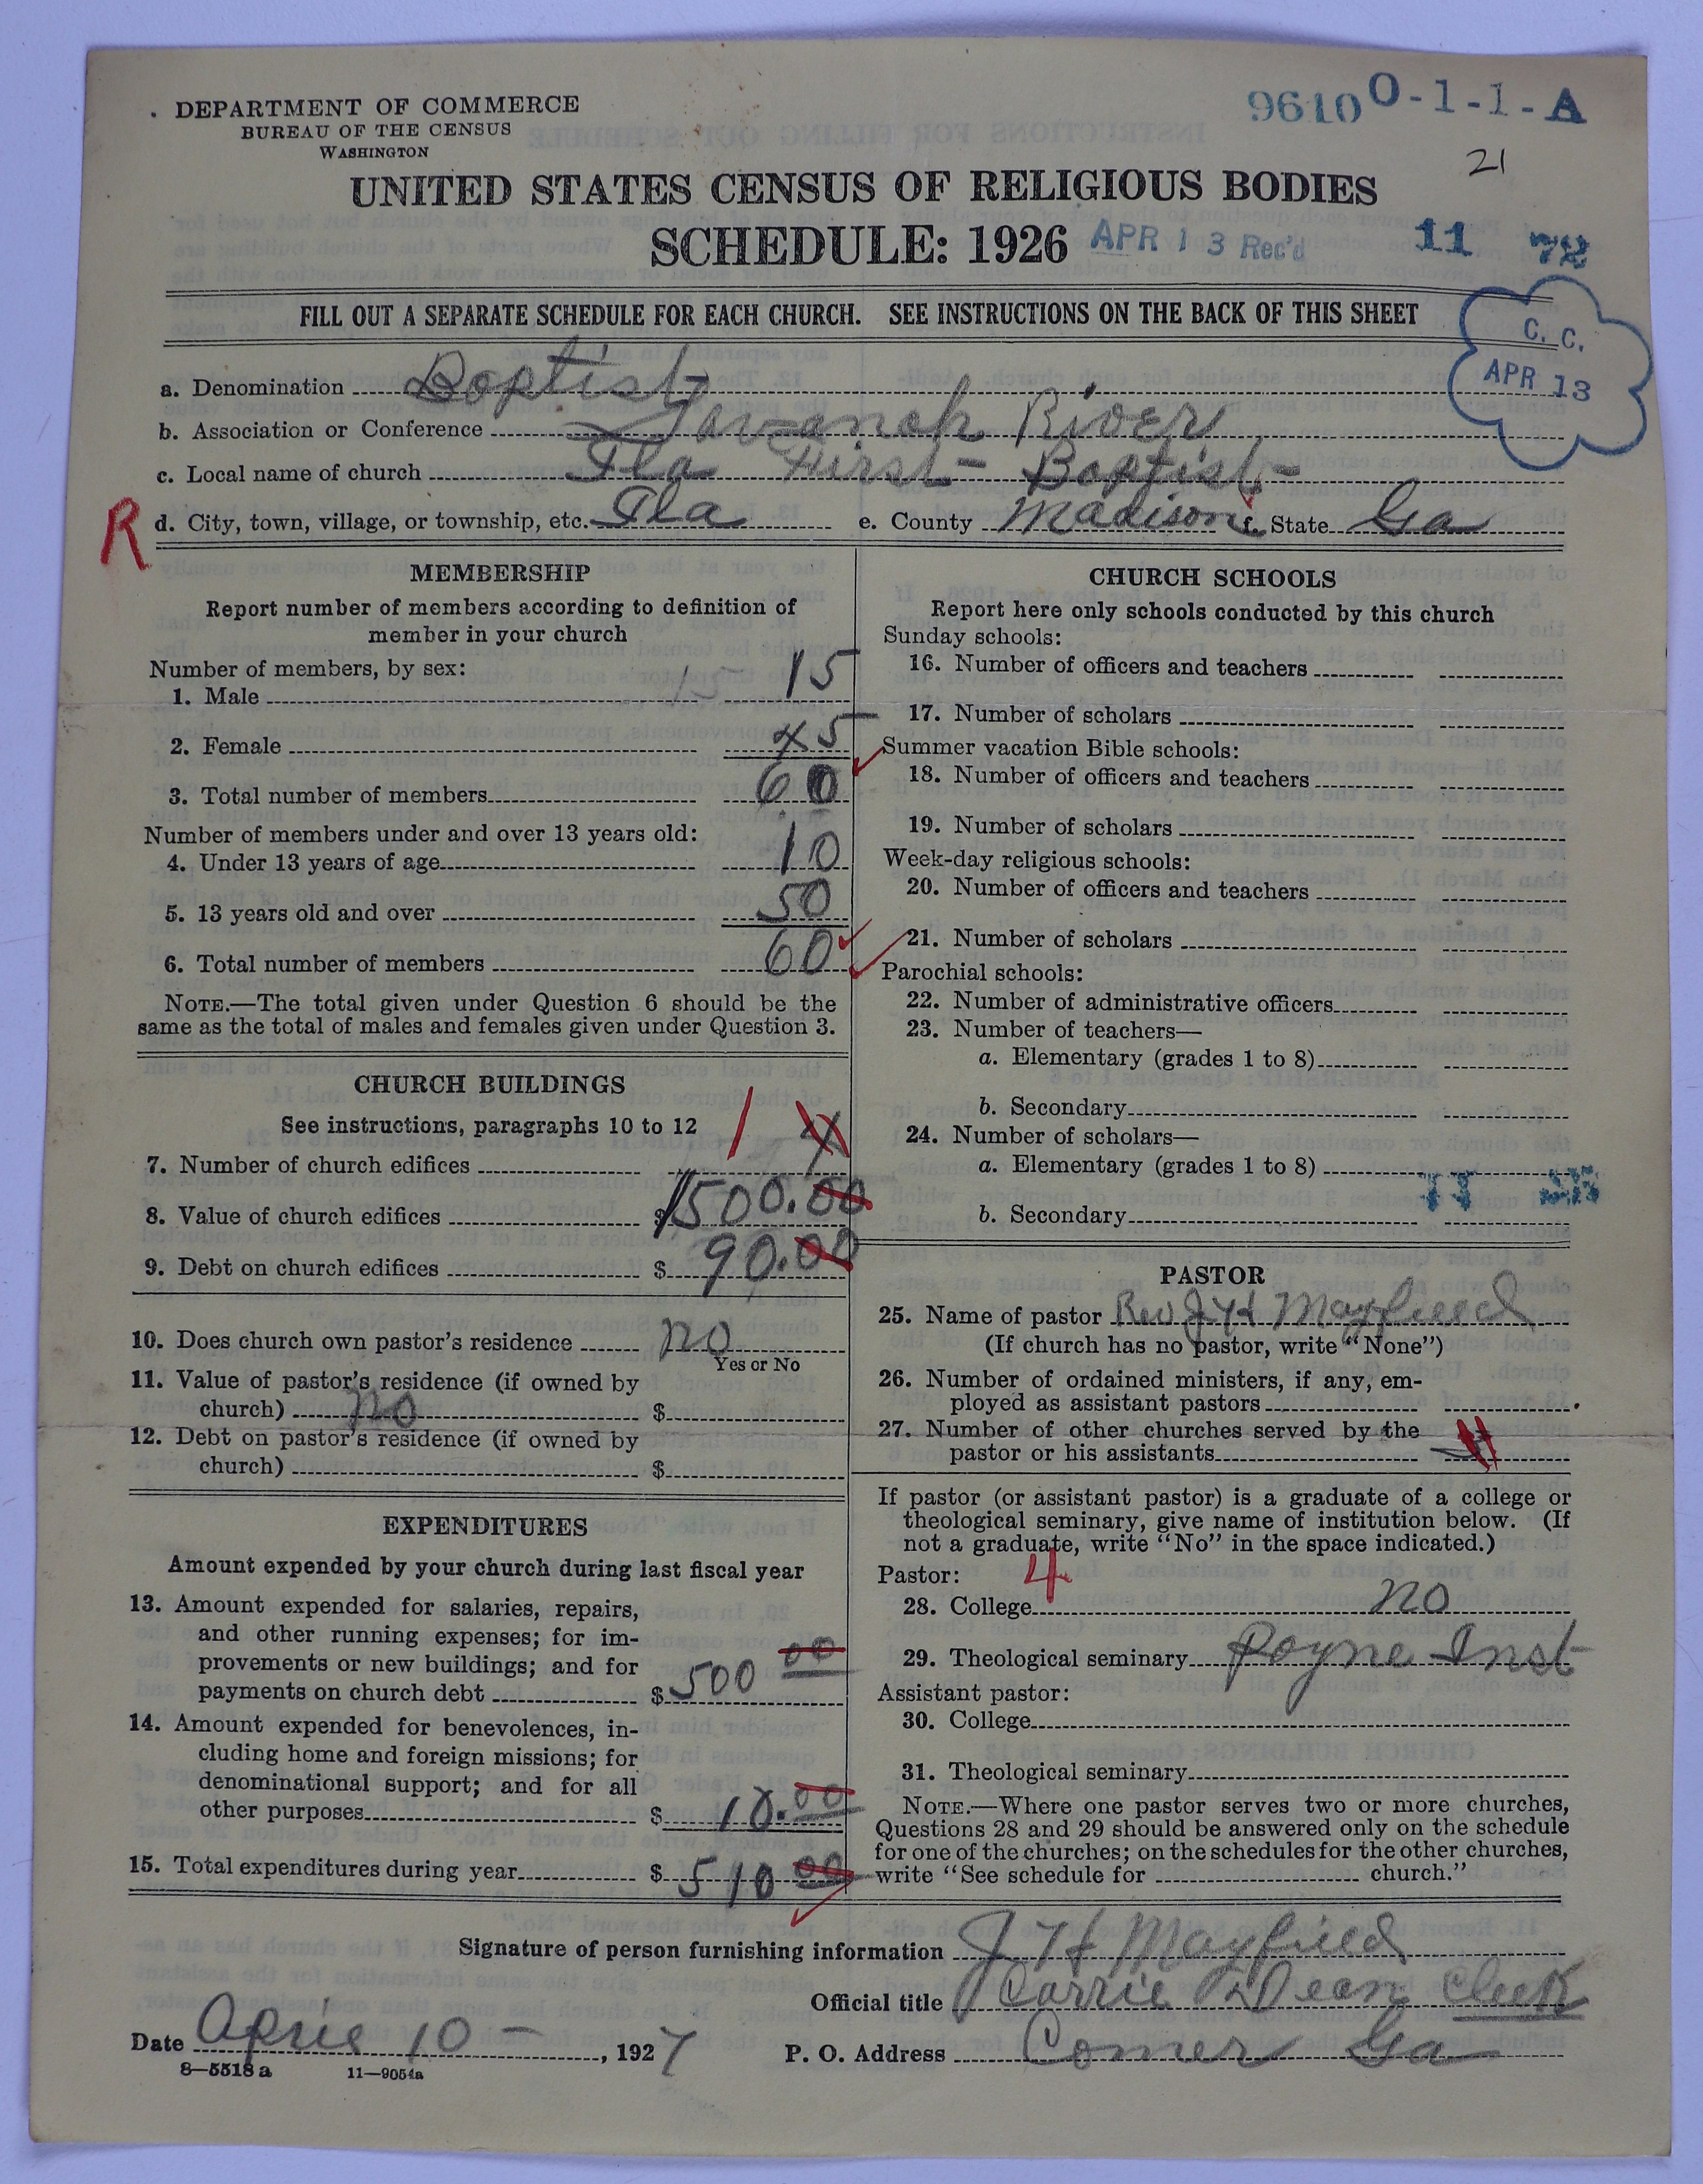 DEPARTMENT OF COMMERCE
BUREAU OF THE CENSUS
WASHINGTON
9610 O-1-1-A
21
UNITED STATES CENSUS OF RELIGIOUS BODIES
SCHEDULE: 1926 APR 13 Rec'd 11 78
FILL OUT A SEPARATE SCHEDULE FOR EACH CHURCH. SEE INSTRUCTIONS ON THE BACK OF THIS SHEET
C. C.
APR 13
a. Denomination Baptist
b. Association or Conference Savanah River
c. Local name of church Ila First Baptist
R
d. City, town, village, or township, etc. Ila e. County Madison f. State Ga
MEMBERSHIP
Report number of members according to definition of
member in your church
Number of members, by sex:
1. Male 15 15
2. Female 45
3. Total number of members 60
Number of members under and over 13 years old:
4. Under 13 years of age 10
5. 13 years old and over 50
6. Total number of members 60
NOTE.—The total given under Question 6 should be the
same as the total of males and females given under Question 3.
CHURCH BUILDINGS
See instructions, paragraphs 10 to 12
7. Number of church edifices 1
8. Value of church edifices $1500.00
9. Debt on church edifices $ 90.00
10. Does church own pastor's residence no
Yes or No
11. Value of pastor's residence (if owned by
church) no $
12. Debt on pastor's residence (if owned by
church) $
EXPENDITURES
Amount expended by your church during last fiscal year
13. Amount expended for salaries, repairs,
and other running expenses; for im-
provements or new buildings; and for
payments on church debt $ 500 00
14. Amount expended for benevolences, in-
cluding home and foreign missions; for
denominational support; and for all
other purposes $ 10.00
15. Total expenditures during year $ 510 00
CHURCH SCHOOLS
Report here only schools conducted by this church
Sunday schools:
16. Number of officers and teachers
17. Number of scholars
Summer vacation Bible schools:
18. Number of officers and teachers
19. Number of scholars
Week-day religious schools:
20. Number of officers and teachers
21. Number of scholars
Parochial schools:
22. Number of administrative officers
23. Number of teachers—
a. Elementary (grades 1 to 8)
b. Secondary
24. Number of scholars—
a. Elementary (grades 1 to 8)
11
b. Secondary
PASTOR
25. Name of pastor Rev J H Mayfield
(If church has no pastor, write "None")
26. Number of ordained ministers, if any, em-
ployed as assistant pastors
27. Number of other churches served by the
pastor or his assistants
If pastor (or assistant pastor) is a graduate of a college or
theological seminary, give name of institution below. (If
not a graduate, write "No" in the space indicated.)
Pastor: 4
28. College no
29. Theological seminary Payne Inst
Assistant pastor:
30. College
31. Theological seminary
NOTE.—Where one pastor serves two or more churches,
Questions 28 and 29 should be answered only on the schedule
for one of the churches; on the schedules for the other churches,
write "See schedule for church."
Signature of person furnishing information J H Mayfield
Official title Carrie Dean Clerk
Date April 10 , 1927 P. O. Address Comer Ga
8—5518 a 11—9054a